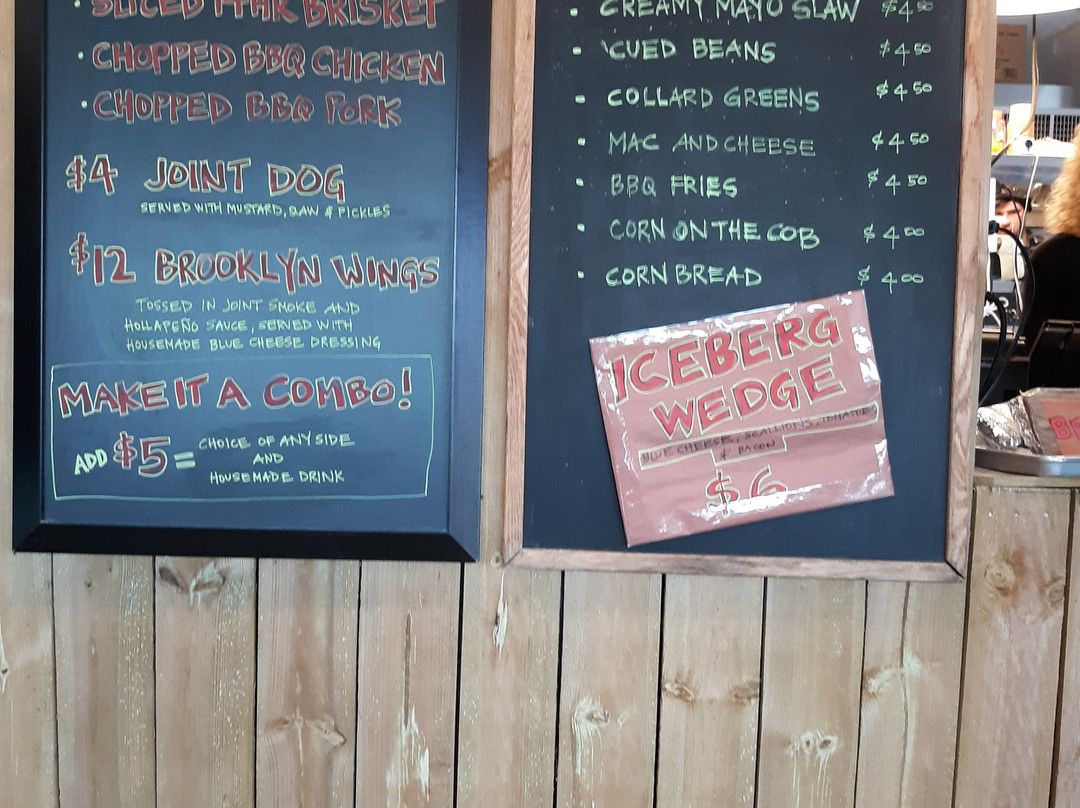 • SLICED 14HR BRISKET
• CHOPPED BBQ CHICKEN
• CHOPPED BBQ PORK
$4 JOINT DOG
SERVED WITH MUSTARD, RAW & PICKLES
$12 BROOKLYN WINGS
TOSSED IN JOINT SMOKE AND
HOLLAPEÑO SAUCE, SERVED WITH
HOUSEMADE BLUE CHEESE DRESSING
MAKE IT A COMBO!
ADD $5 = CHOICE OF ANY SIDE
AND
HOUSEMADE DRINK
• CREAMY MAYO SLAW $4.50
• 'CUED BEANS $4 50
• COLLARD GREENS $4 50
• MAC AND CHEESE $4 50
• BBQ FRIES $4 50
• CORN ON THE COB $4 00
• CORN BREAD $4 00
ICEBERG
WEDGE
BLUE CHEESE, SCALLIONS, TOMATOES
& BACON
$6